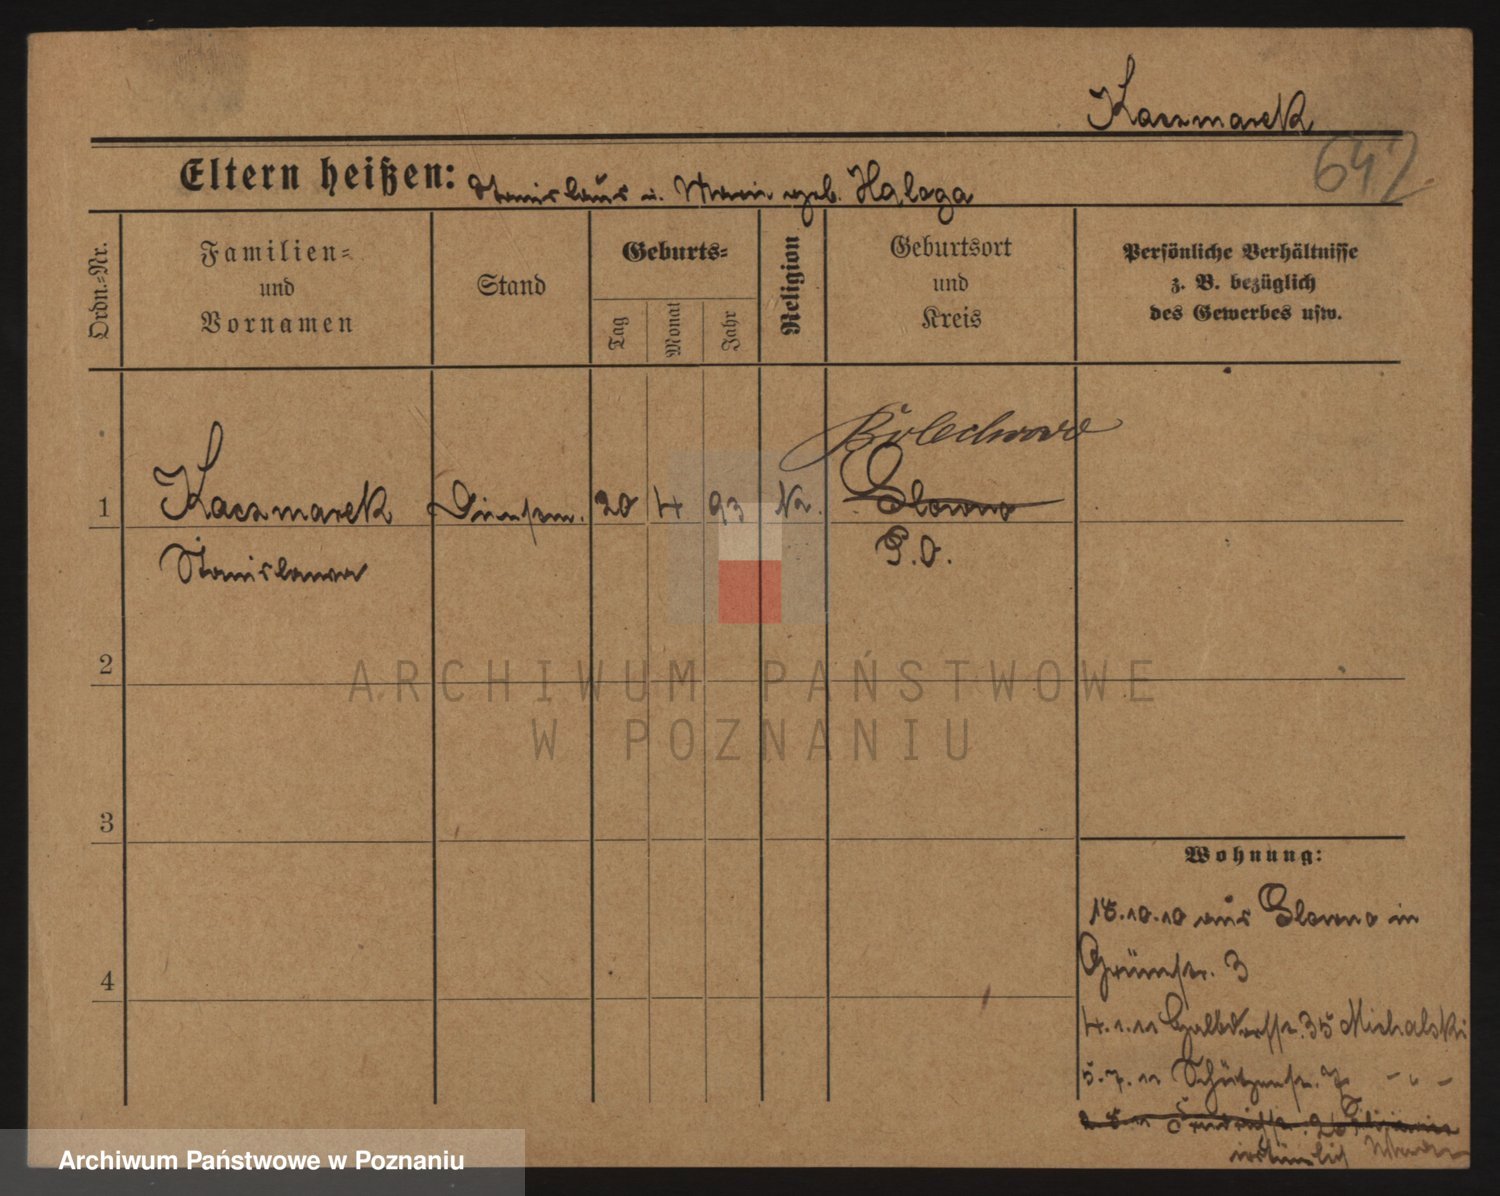 Kaczmarek
642
Eltern heißen: Stanislaus u. Marie geb. Halaga
Ordn.=Nr.
Familien=
und
Vornamen
Stand
Geburts=
Tag
Monat
Jahr
Religion
Geburtsort
und
Kreis
Persönliche Verhältnisse
z. B. bezüglich
des Gewerbes usw.
Bolechowo
1 Kaczmarek Dienstm. 20 4 93 k. Glowno
Stanislawa P.O.
2
ARCHIWUM PAŃSTWOWE
W POZNANIU
3
Wohnung:
18.10.10 aus Glowno in
Grünestr. 3
4
4.1.11 Halbdorfstr. 35 Michalski
5.7.11 Schützenstr. 7 - " -
irrtümlich
Archiwum Państwowe w Poznaniu